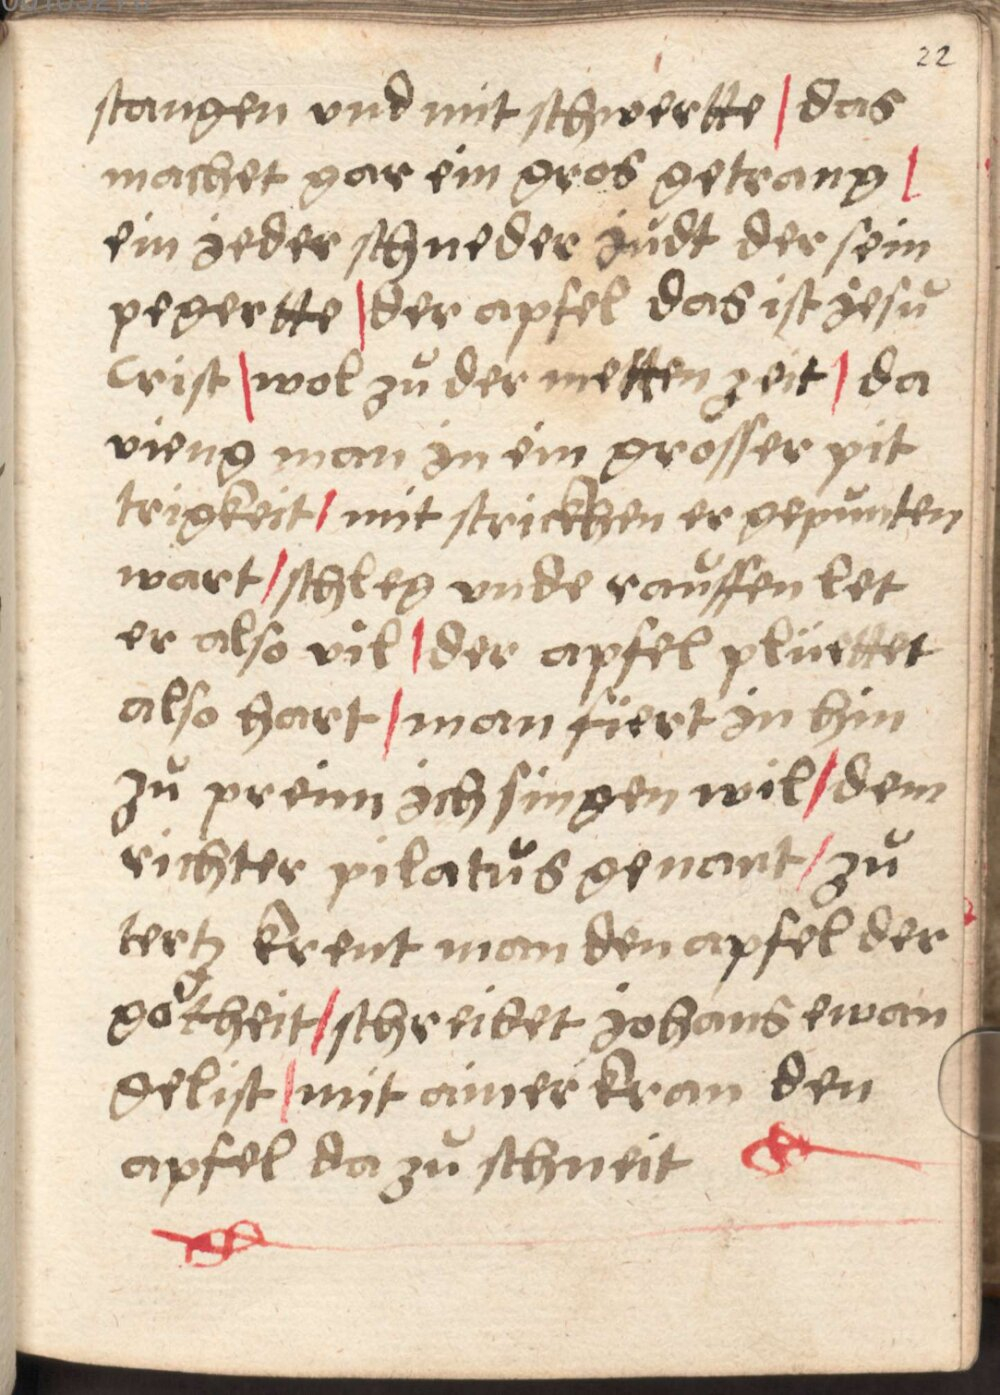 22
stangen vnd mit schwertte / das
machet gar ein gros getrang /
ein jeder schneder judt der sein
pegertte / der apfel das ist jesu
Crist / wol zu der metten zeit / da
vieng man jn ein grosser pit
trigkeit / mit strickhen er gepunten
wart / schleg vnde rauffen let
er also vil / der apfel plüettet
also hart / man fiert jn hin
zu preim jch singen wil / dem
richter pilatus genant / zu
tertz krent man den apfel der
gotheit / schreibet johans ewan
gelist / mit ainer kran den
apfel da zu schneit